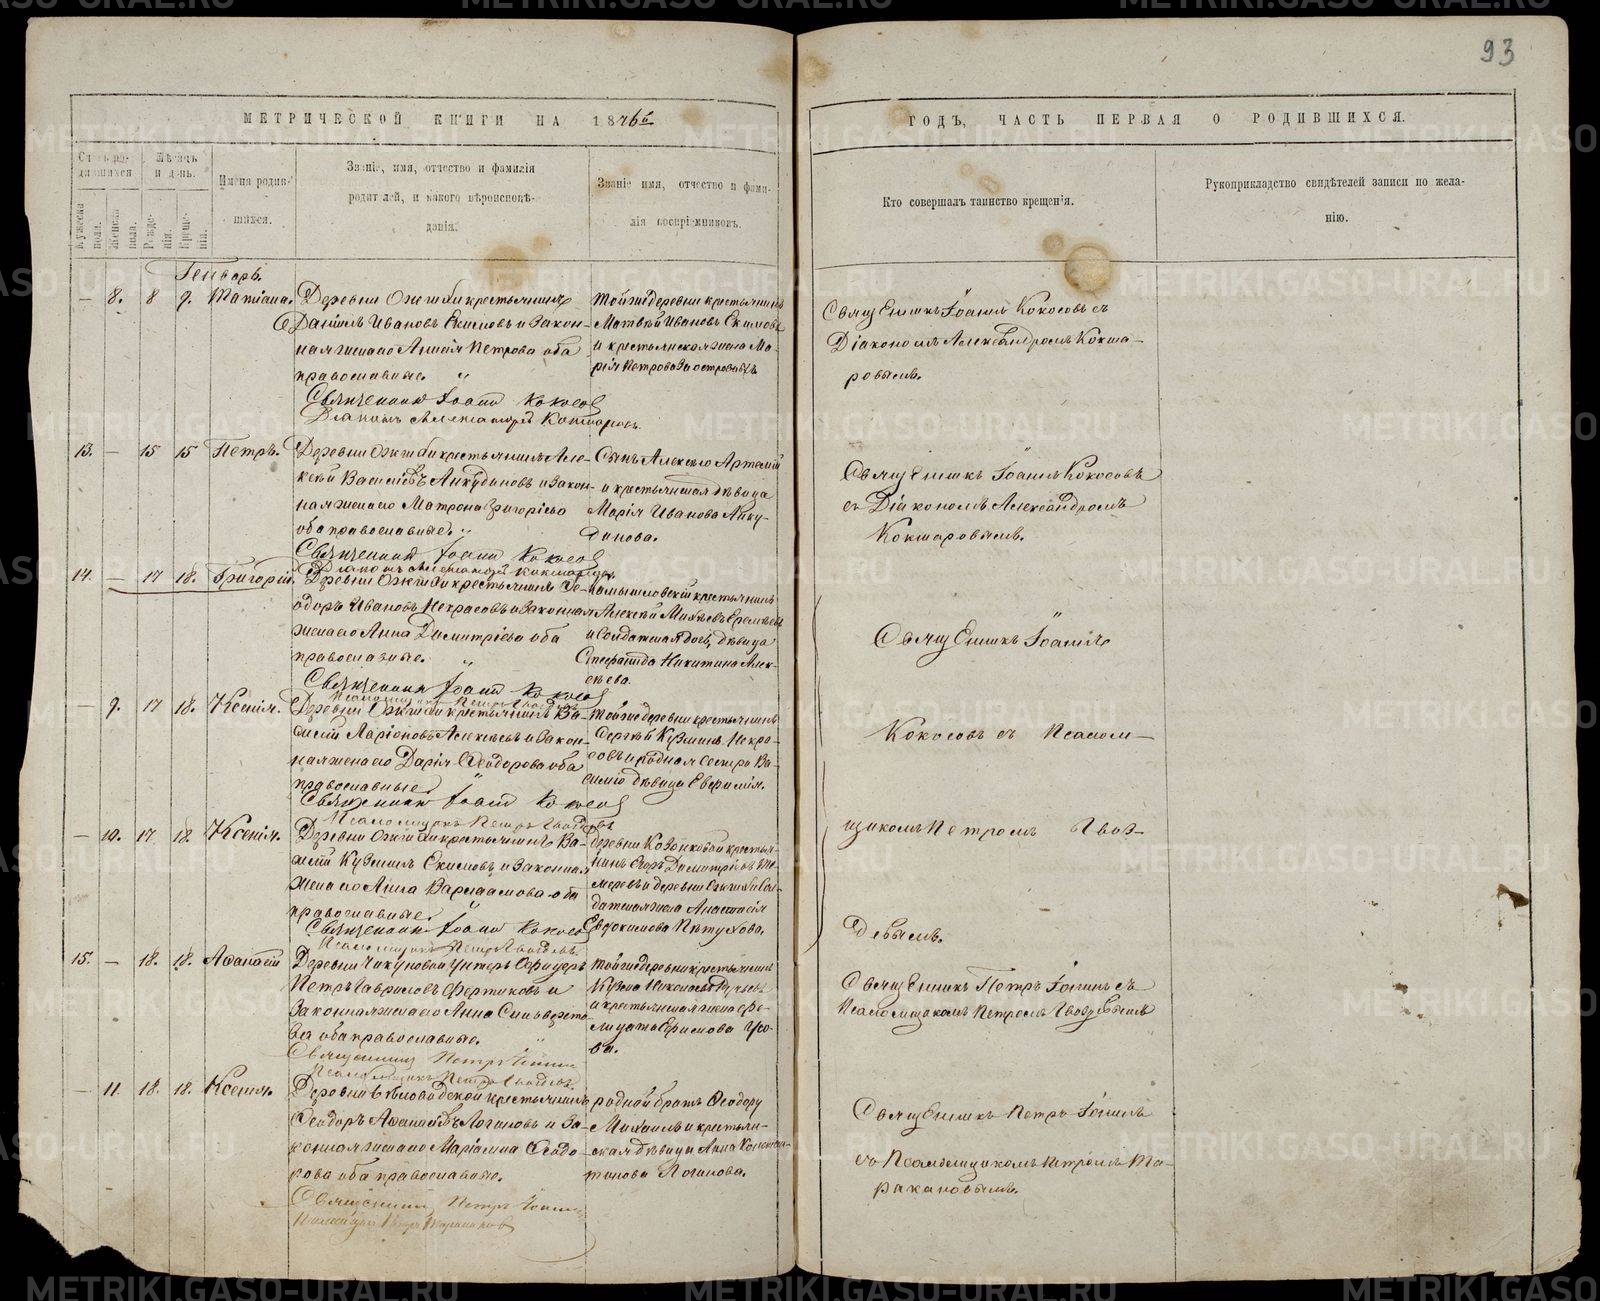 93
МЕТРИЧЕСКОЙ КНИГИ НА 1876й
ГОДЪ, ЧАСТЬ ПЕРВАЯ О РОДИВШИХСЯ.
Счетъ родившихся
Мѣсяцъ и день.
Мужеска пола.
Женска пола.
Рожденія.
Крещенія.
Имена родившихся.
Званіе, имя, отчество и фамилія
родителей, и какого вѣроисповѣ-
данія.
Званіе имя, отчество и фами-
лія воспріемниковъ.
Кто совершалъ таинство крещенія.
Рукоприкладство свидѣтелей записи по жела-
нію.
Генварь.
— 8. 8 9. Татіана.
Деревни крестьянинъ
Даніилъ Ивановъ Екимовъ и закон-
ная жена его Петрова оба
православные.
Священник Іоанн Кокосов
Діаконъ Александръ Кокшаровъ.
той же деревни крестьянинъ
Матвѣй Ивановъ Екимовъ
и крестьянская жена Ма-
рія Петрова
Священникъ Іоаннъ Кокосовъ съ
Діакономъ Александромъ Кокша-
ровымъ.
13. — 15 15 Петръ.
Деревни крестьянинъ Але-
ксѣй Васильевъ Анкудиновъ и закон-
ная жена его Матрона Григорьева
оба православные.
Священник Іоанн Кокосов
Діаконъ Александръ Кокшаровъ.
Сынъ Алексѣя Артемій
и крестьянская дѣвица
Марія Иванова Анку-
динова.
Священникъ Іоаннъ Кокосовъ
съ Діакономъ Александромъ
Кокшаровымъ.
14. — 17 18. Григорій.
Деревни крестьянинъ Ѳе-
одоръ Ивановъ Некрасовъ и законная
жена его Анна Димитріева оба
православные.
Священник Іоанн Кокосов
Камышловскій крестьянинъ
Алексѣй
и солдатская дочь, дѣвица
Степанида Никитина Алек-
сѣева.
Священникъ Іоаннъ
— 9. 17 18. Ксенія.
Деревни крестьянинъ Ва-
силій Ларіоновъ Алексѣевъ и закон-
ная жена его Дарія Ѳеодорова оба
православные
Священник Іоанн Кокосов
Псаломщикъ Петръ Гвоздевъ
той же деревни крестьянинъ
Сергѣй Кузминъ Некра-
совъ и родная сестра Ва-
силія дѣвица Евфимія.
Кокосовъ съ Псалом-
— 10. 17 18 Ксенія.
Деревни крестьянинъ Ва-
силій Кузминъ Екимовъ и законная
жена его Анна Варлаамова оба
православные
Священник Іоанн Кокосов
Псаломщикъ Петръ Гвоздевъ.
деревни крестья-
нинъ Егоръ Димитріевъ
и деревни сол-
датская жена Анастасія
Евдокимова Пѣтухова.
щикомъ Петромъ Гвоз-
девымъ.
15. — 18. 18. Аѳанасій
Деревни Чикуновой унтеръ офицеръ
Петръ Гавриловъ Фертиковъ и
законная жена его Анна Сильверсто-
ва оба православные.
Священник Петръ
Псаломщикъ Петръ Гвоздевъ.
той же деревни крестьянинъ
Кузма Николаевъ
и крестьянская жена Ѳе-
Ефимова
ва.
Священникъ Петръ съ
Псаломщикомъ Петромъ Гвоздевымъ
— 11. 18. 18. Ксенія.
Деревни крестьянинъ
Ѳеодоръ Логиновъ и за-
конная жена его Маріамна Ѳеодо-
рова оба православные.
Священникъ Петръ
родной братъ Ѳеодору
Михаилъ и крестьян-
ская дѣвица Анна Констан-
тинова Логинова.
Священникъ Петръ
съ Псаломщикомъ Петромъ Та-
ракановымъ.